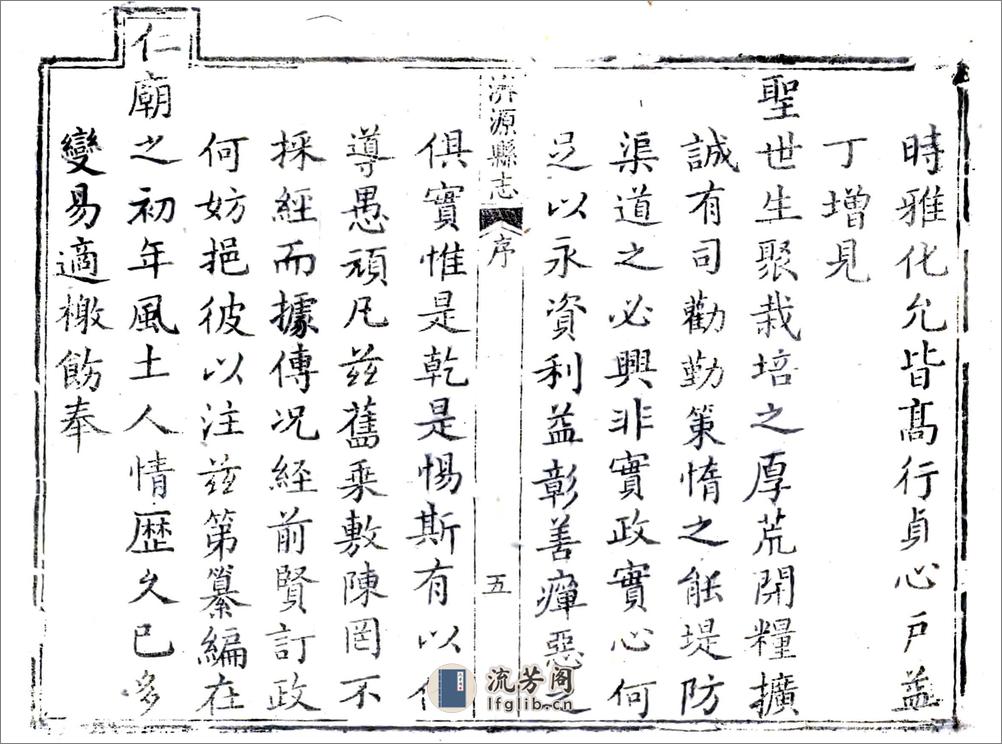 時雅化允皆髙行貞心戸益
丁增見
聖世生聚栽培之厚荒開糧擴
誠有司勸勤策惰之能堤防
渠道之必興非實政實心何
足以永資利益彰善癉惡
濟源縣志 序 五
俱實惟是乾是惕斯有以
導愚頑凡兹舊乘敷陳罔不
採經而據傳况經前賢訂政
何妨挹彼以注兹第纂編在
仁廟之初年風土人情歴久已多
變易適檄飭奉
流芳阁
lfglib.cn